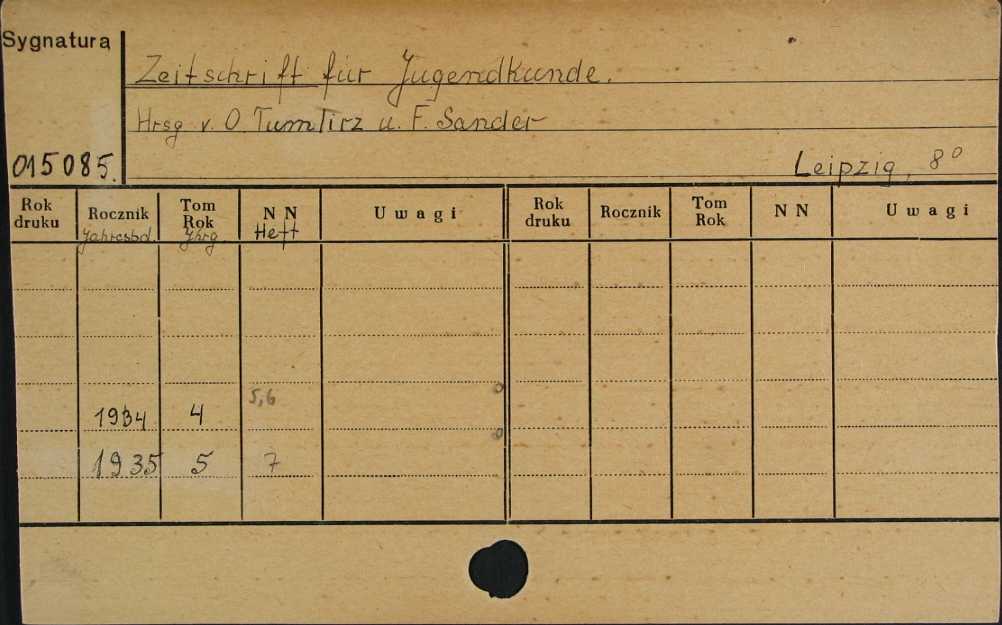 Sygnatura
Zeitschrift für Jugendkunde.
Hrsg v. O. Tumlirz u. F. Sander
015085.
Leipzig, 8°
Rok druku Rocznik Tom Rok N N Uwagi Rok druku Rocznik Tom Rok N N Uwagi
Jahresbd. Jhrg. Heft
1934 4 5,6
1935 5 7